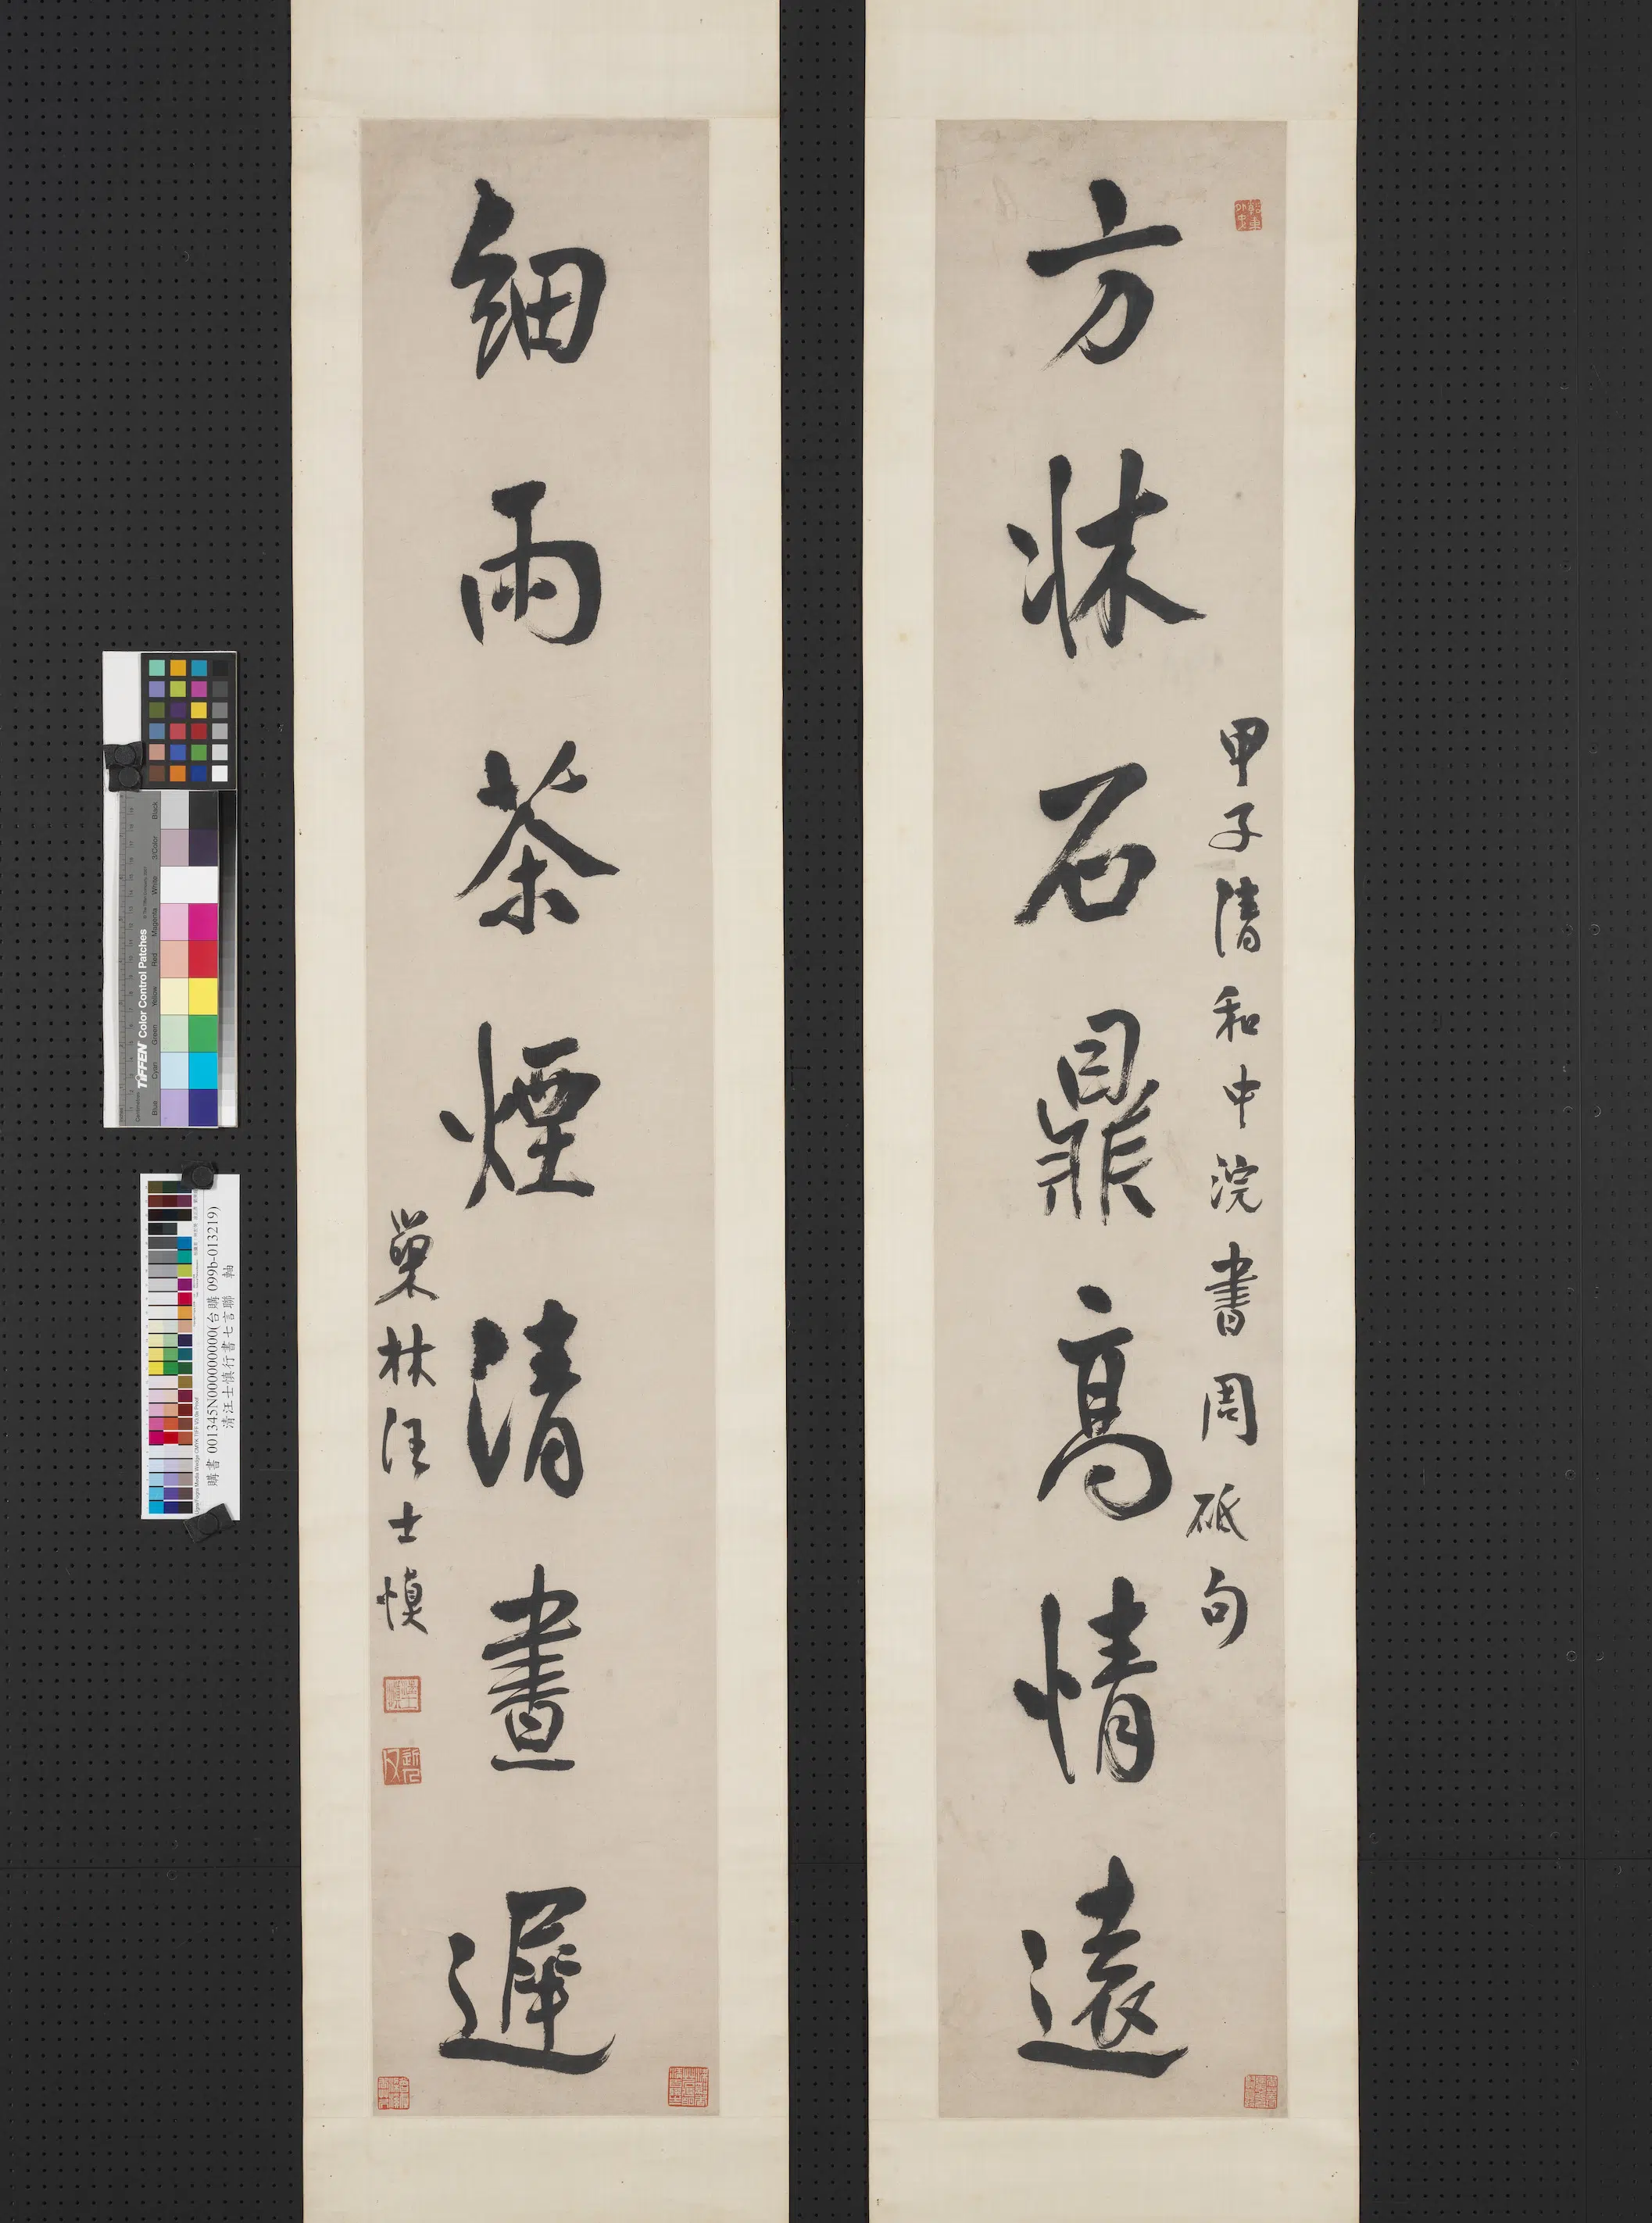 方牀石鼎高情遠
甲子清和中浣書周砥句
細雨茶煙清晝遲
巢林汪士慎
TIFFEN Color Control Patches
Blue Cyan Green Yellow Red Magenta White 3/Color Black
購書 001345N000000000(台購 099b-013219)
清汪士慎行書七言聯 軸